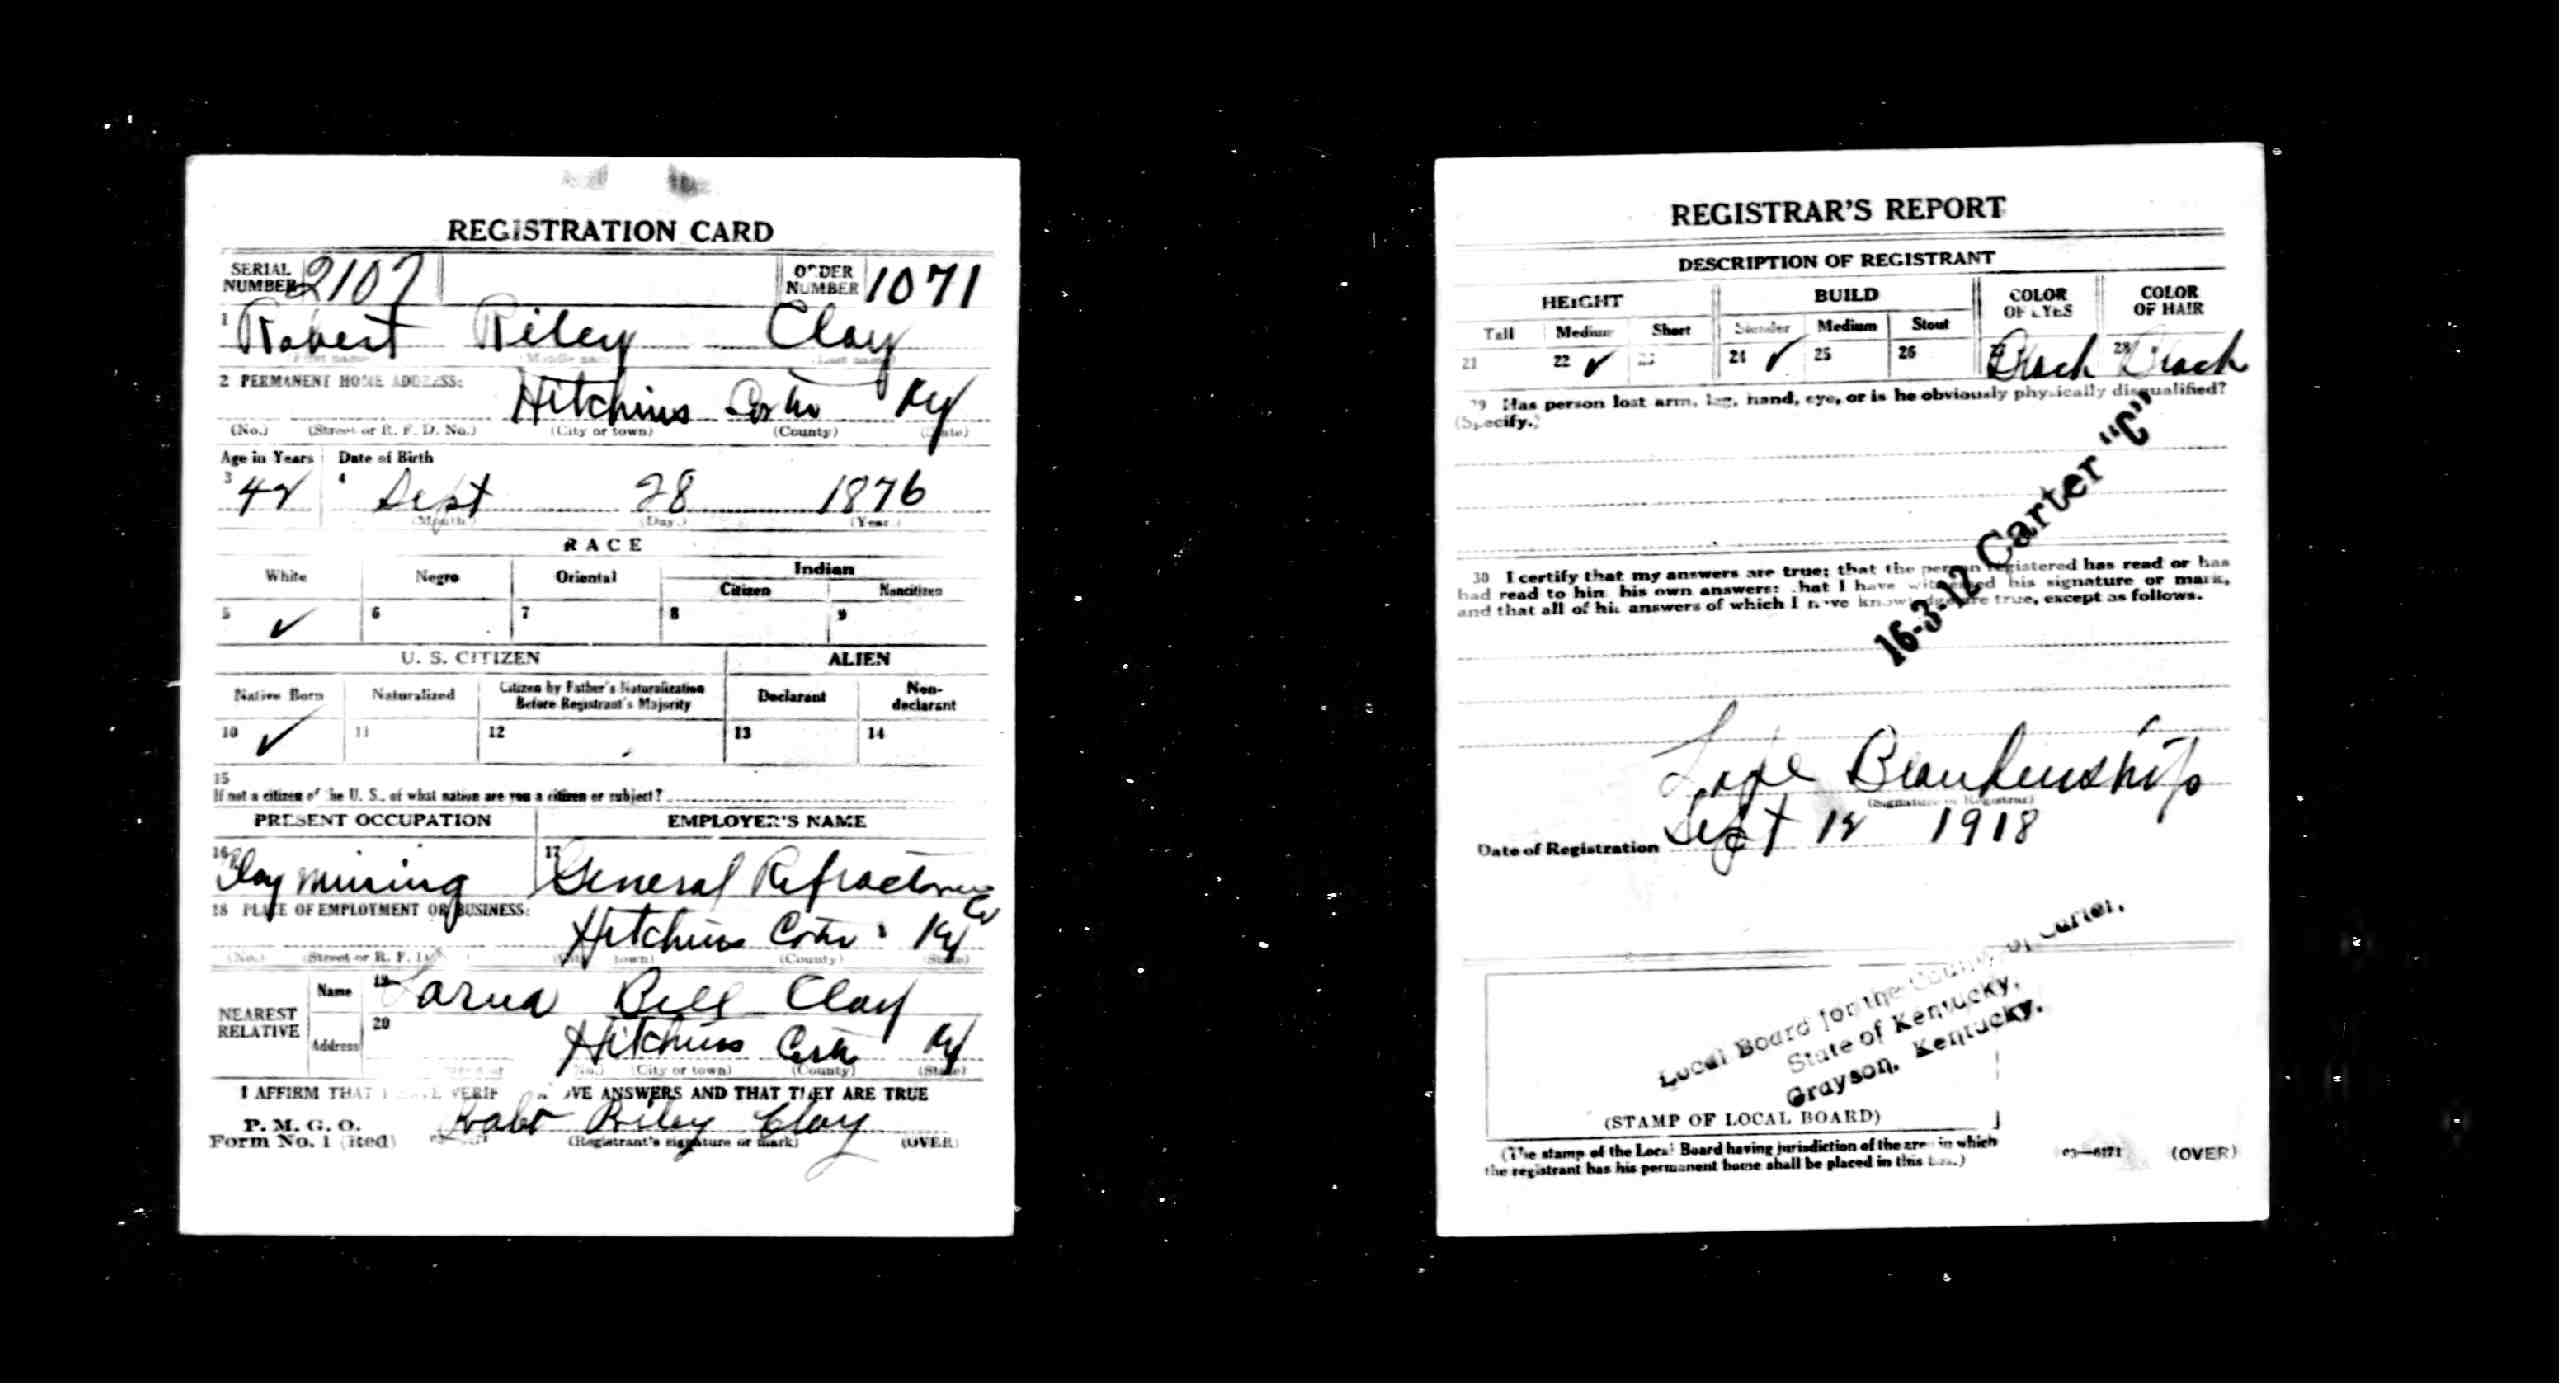 REGISTRATION CARD
SERIAL NUMBER 2107
ORDER NUMBER 1071
1 Robert Riley Clay
First name Middle name Last name
2 PERMANENT HOME ADDRESS:
Hitchins Carter Ky
(No.) (Street or R. F. D. No.) (City or town) (County) (State)
Age in Years Date of Birth
3 42 4 Sept 28 1876
(Month) (Day.) (Year.)
RACE
White Negro Oriental Indian
Citizen Noncitizen
5 ✓ 6 7 8 9
U. S. CITIZEN ALIEN
Native Born Naturalized Citizen by Father's Naturalization Before Registrant's Majority Declarant Non-declarant
10 ✓ 11 12 13 14
15
If not a citizen of the U. S., of what nation are you a citizen or subject?
PRESENT OCCUPATION EMPLOYER'S NAME
16 Clay mining 17 General Refractories Co
18 PLACE OF EMPLOYMENT OR BUSINESS:
Hitchins Carter Ky
(No.) (Street or R. F. D. ) (City town) (County) (State)
NEAREST RELATIVE
Name 19 Bell Clay
Address 20 Hitchins Carter Ky
(No.) (City or town) (County) (State)
I AFFIRM THAT I HAVE VERIF OVE ANSWERS AND THAT THEY ARE TRUE
P. M. G. O.
Form No. 1 (Red) Robt Riley Clay
(Registrant's signature or mark) (OVER)
REGISTRAR'S REPORT
DESCRIPTION OF REGISTRANT
HEIGHT BUILD COLOR OF EYES COLOR OF HAIR
Tall Medium Short Slender Medium Stout
21 22 ✓ 23 24 ✓ 25 26 27 Black 28 Black
29 Has person lost arm, leg, hand, eye, or is he obviously physically disqualified?
(Specify.)
16-3-12 Carter "C"
30 I certify that my answers are true; that the person registered has read or has
had read to him his own answers; that I have witnessed his signature or mark,
and that all of his answers of which I have knowledge are true, except as follows.
Blankenship
(Signature of Registrar)
Date of Registration Sept 12 1918
Local Board for the County of Carter,
State of Kentucky,
Grayson, Kentucky.
(STAMP OF LOCAL BOARD)
(The stamp of the Local Board having jurisdiction of the area in which
the registrant has his permanent home shall be placed in this box.)
03—6171 (OVER)